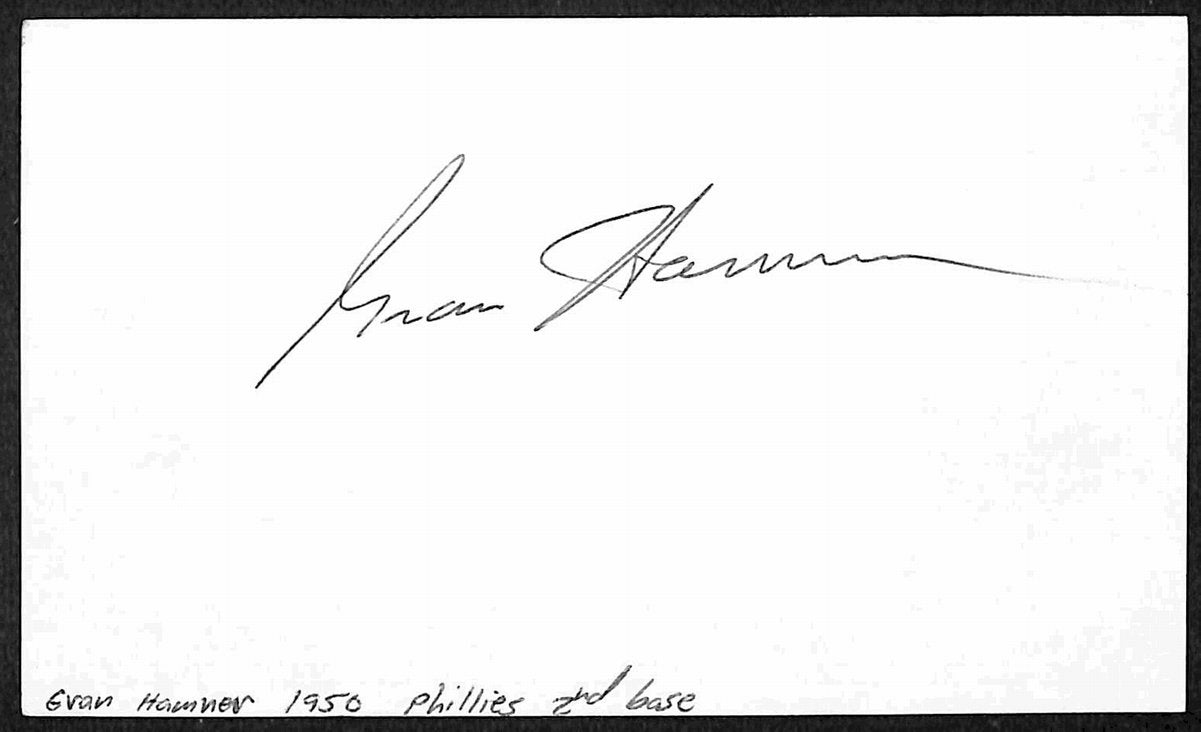 Gran Hamner
Gran Hamner 1950 Phillies 2nd base